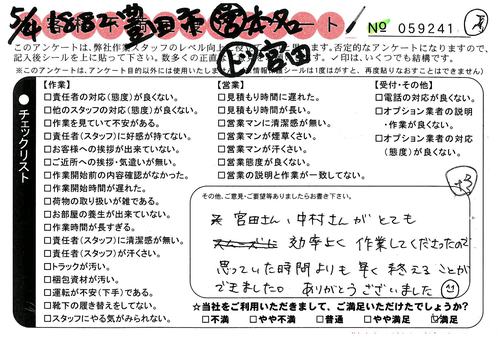 5/4
№ 059241
このアンケートは、弊社作業スタッフのレベル向上
います。否定的なアンケートになりますので、
記入後シールを上に貼って下さい。数多くの正直
します。✓印は、いくつでも結構です。
※このアンケートは、アンケート目的以外には使用いたし
情報保護シールは1度がすと、再度貼りなおすことはできません)
チェックリスト
【作業】
□責任者の対応(態度)が良くない。
□他のスタッフの対応(態度)が良くない。
□作業を見ていて不安がある。
□責任者(スタッフ)に好感が持てない。
□お客様への挨拶が出来ていない。
□ご近所への挨拶・気遣いが無い。
□作業開始前の内容確認がなかった。
□作業開始時間が遅れた。
□荷物の取り扱いが雑である。
□お部屋の養生が出来ていない。
□作業時間が長すぎる。
□責任者(スタッフ)に清潔感が無い。
□責任者(スタッフ)が汗くさい。
□トラックが汚い。
□梱包資材が汚い。
□運転が不安(下手)である。
□靴下の履き替えをしてない。
□スタッフにやる気がみられない。
【営業】
□見積もり時間に遅れた。
□見積もり時間が長い。
□営業マンに清潔感が無い。
□営業マンが煙草くさい。
□営業マンが汗くさい。
□営業態度が良くない。
□営業の説明と作業が一致してない。
【受付・その他】
□電話の対応が良くない。
□オプション業者の説明
・作業が良くない。
□オプション業者の対応
(態度)が良くない。
その他、ご意見・ご要望等ありましたらお書き下さい。
宮田さん、中村さんがとても
効率よく作業してくださったので
思っていた時間よりも早く終えることが
できました。ありがとうございました
☆当社をご利用いただきまして、ご満足いただけたでしょうか?
□不満 □やや不満 □普通 □やや満足 ☑満足